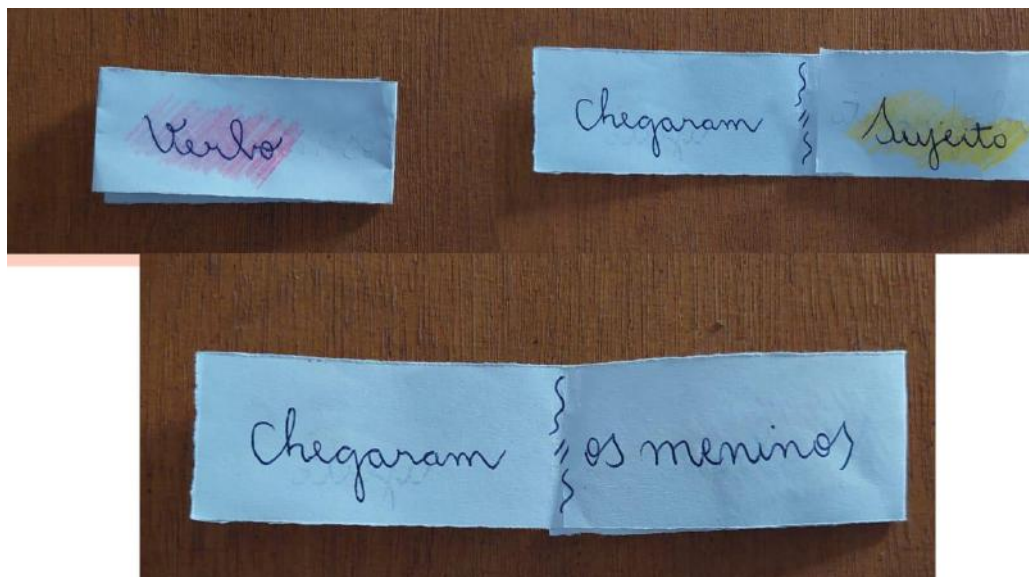 Verbo
Chegaram Sujeito
Chegaram os meninos